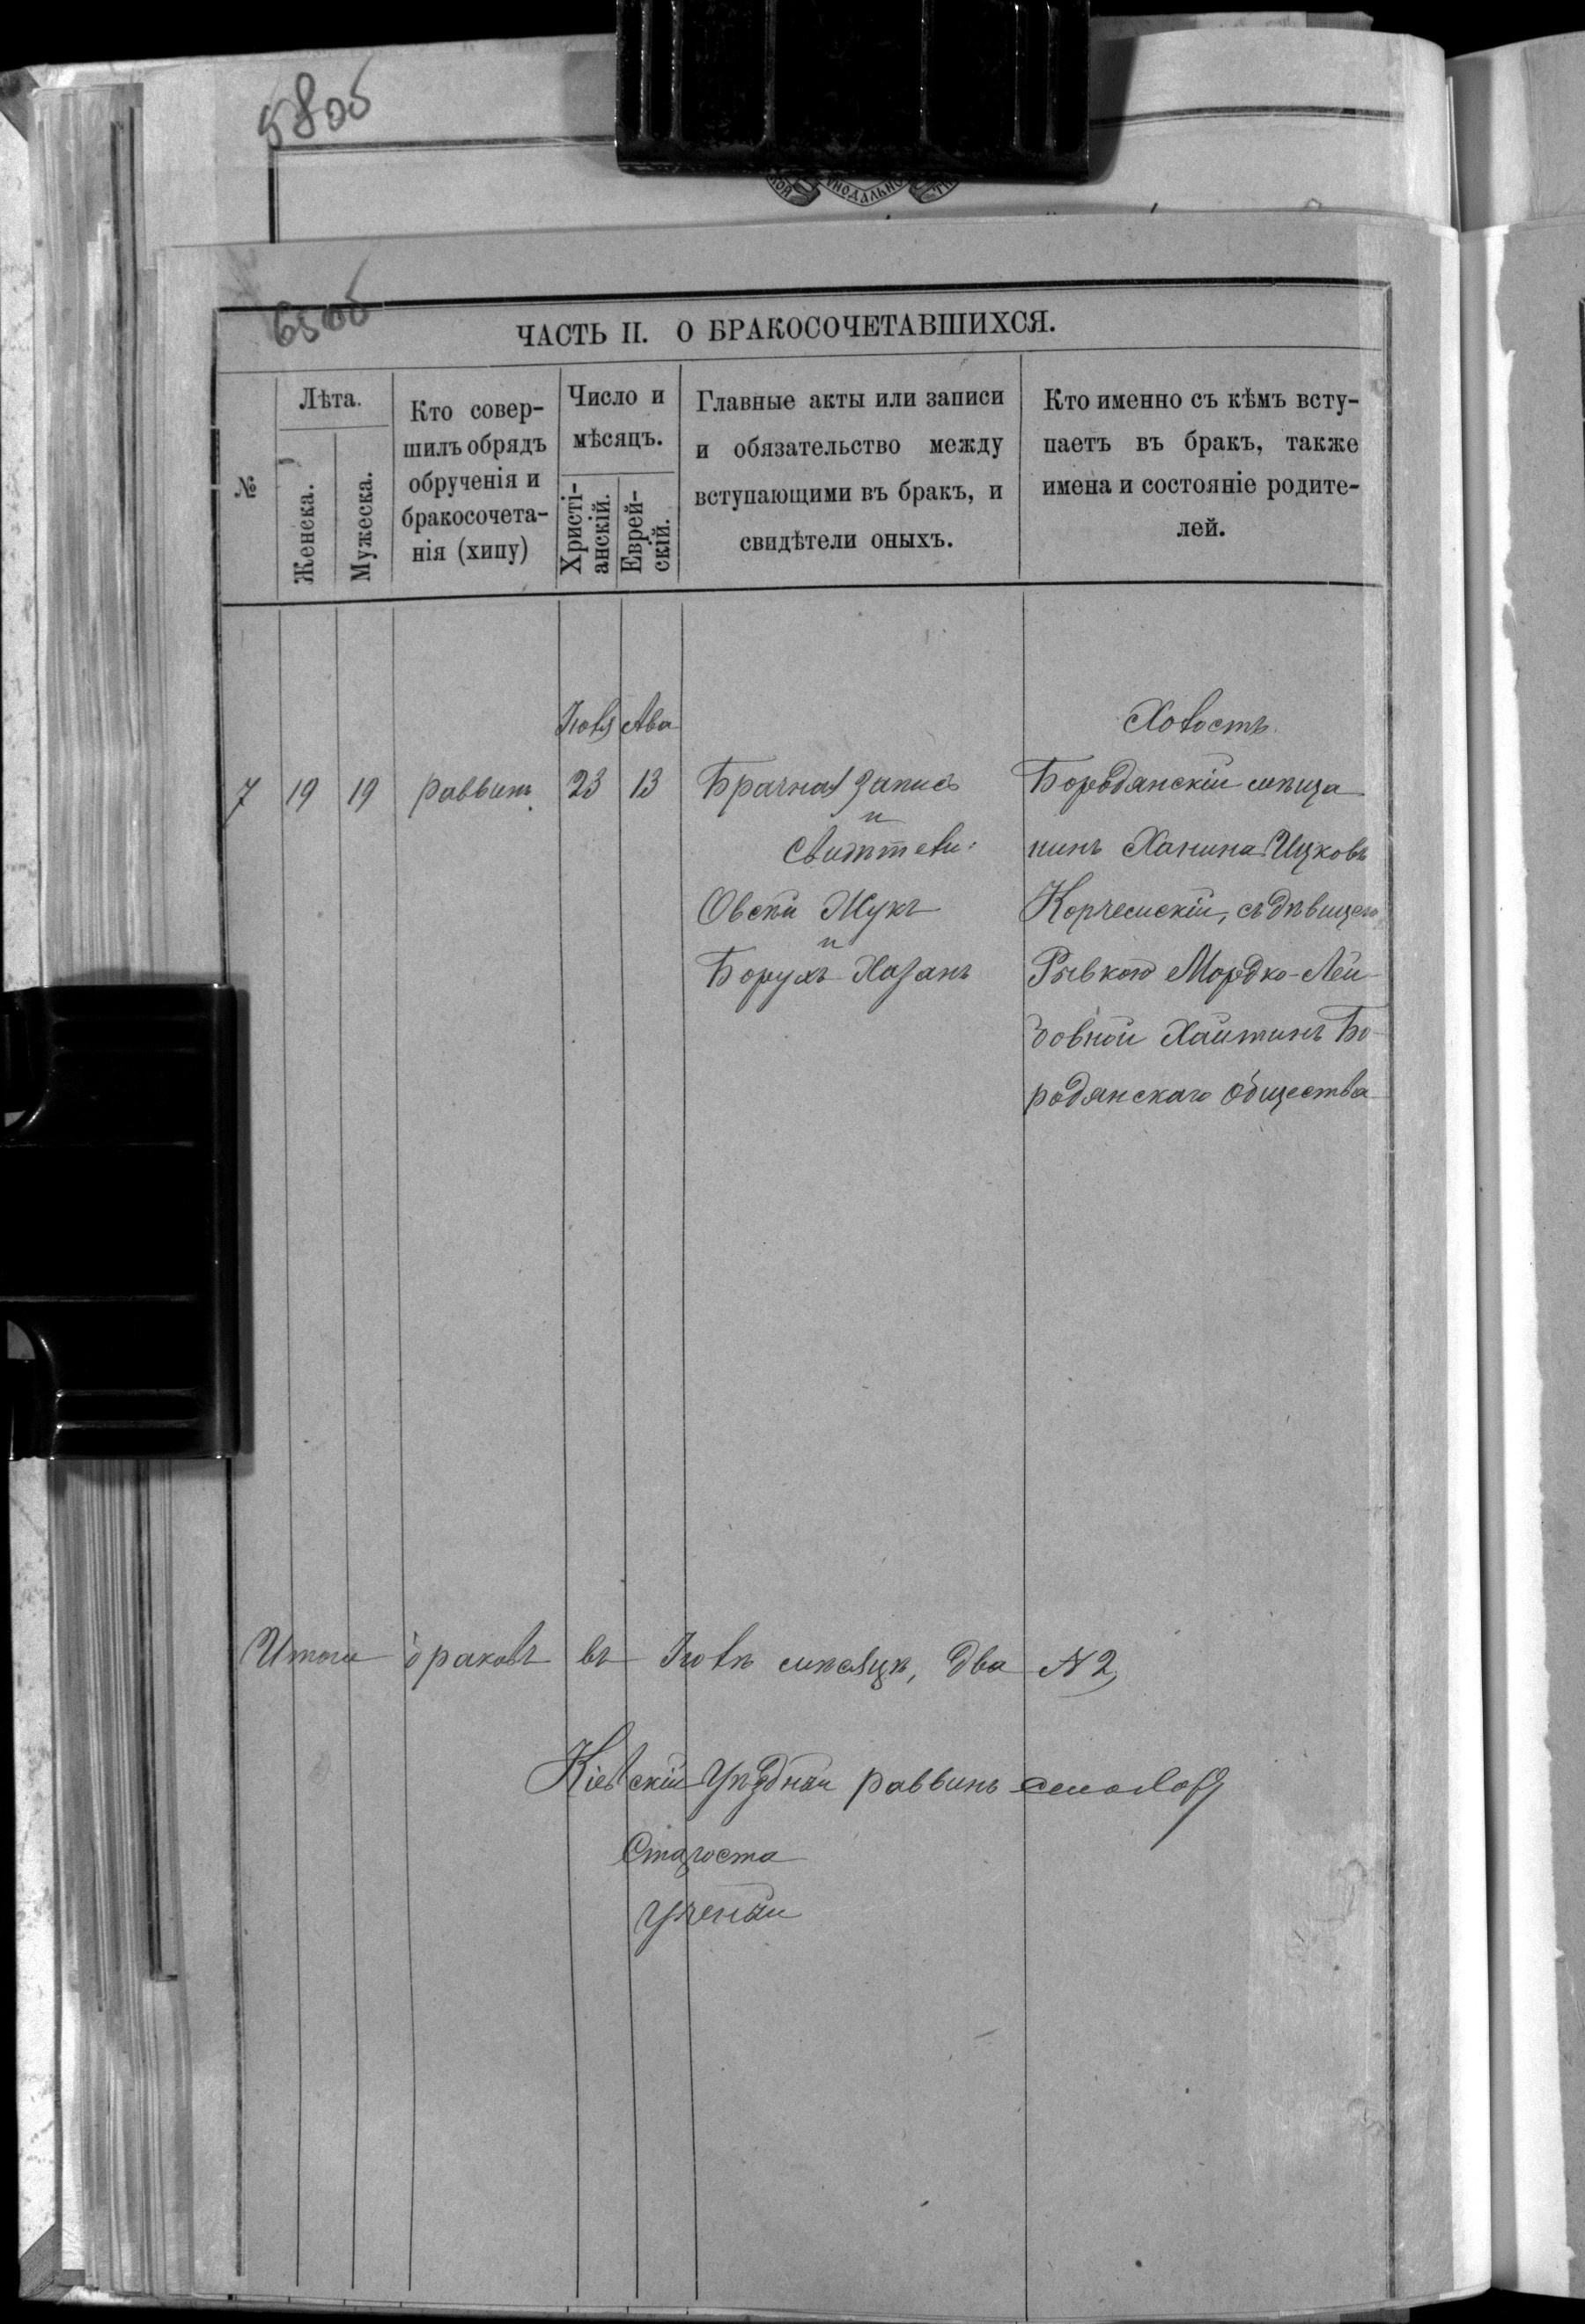 58об
65об
ЧАСТЬ II. О БРАКОСОЧЕТАВШИХСЯ.
№
Лѣта.
Женска.
Мужеска.
Кто совер-
шилъ обрядъ
обрученія и
бракосочета-
нія (хипу)
Число и
мѣсяцъ.
Христі-
анскій.
Еврей-
скій.
Главные акты или записи
и обязательство между
вступающими въ бракъ, и
свидѣтели оныхъ.
Кто именно съ кѣмъ всту-
паетъ въ бракъ, также
имена и состояніе родите-
лей.
Іюля Ава
Холостъ
7 19 19 раввинъ 23 13 Брачная запись
и
Свидѣтели:
Овсей Жукъ
и
Борухъ Хазанъ
Бородянскій мѣща
нинъ Ханина Ицковъ
Корчемскій, съ дѣвицею
Рывкою Мордко-Лей-
зовной Хаитинъ Бо-
родянскаго общества
Итого браковъ въ Іюлѣ мѣсяцѣ, два № 2,
Кіевскій Уѣздный раввинъ
Староста
Ученый